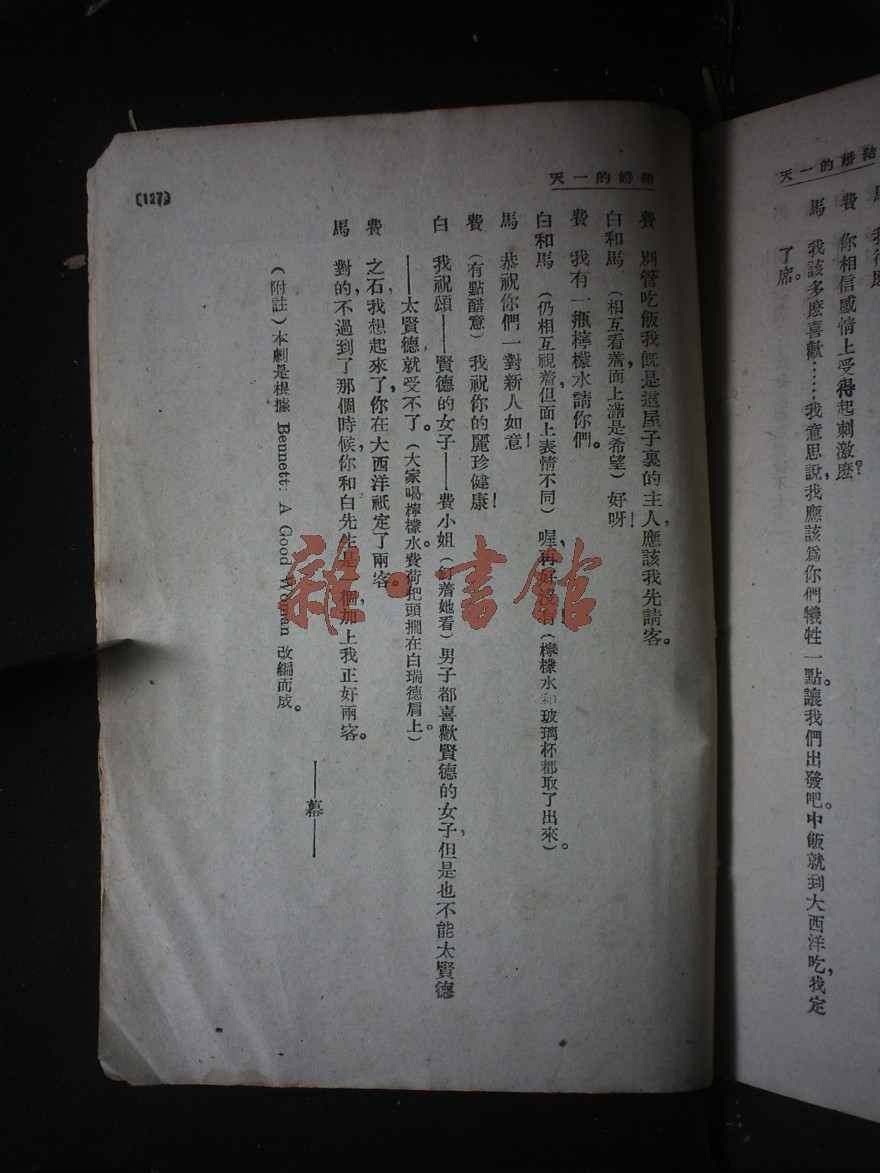 結婚的一天
費 你相信感情上受得起刺激麽?
馬 我該多麽喜歡……我意思說,我應該爲你們犧牲一點。讓我們出發吧。中飯就到大西洋吃,我定
了席。
結婚的一天
費 別管吃飯,我旣是這屋子裏的主人,應該我先請客。
白和馬 (相互看着,面上滿是希望)好呀!
費 我有一瓶檸檬水請你們。
白和馬 (仍相互視着,但面上表情不同)喔,再好沒有!(檸檬水和玻璃杯都取了出來)。
馬 恭祝你們一對新人如意!
費 (有點醋意)我祝你的麗珍健康!
白 我祝頌——賢德的女子——費小姐(看她)男子都喜歡賢德的女子,但是也不能太賢德
——太賢德就受不了。(大家喝檸檬水。費荷把頭擱在白瑞德肩上。)
費 之石,我想起來了,你在大西洋祇定了兩客。
馬 對的,不過到了那個時候,你和白先生是一個,加上我正好兩客。
——幕——
(附註)本劇是根據 Bennett: A Good Woman 改編而成。
(127)
雜·書館